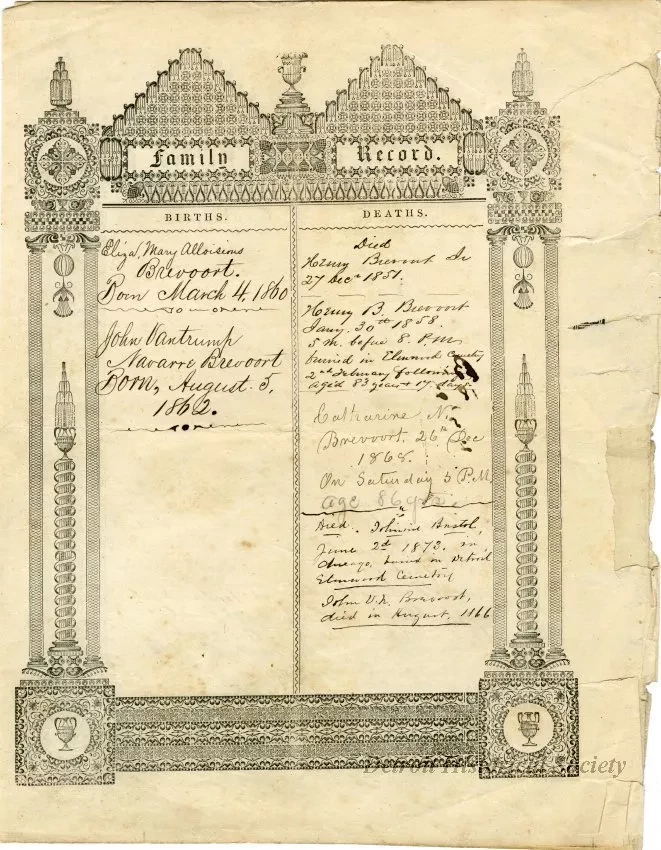 Family Record.
BIRTHS.
Eliza, Mary Alloisius
Brevoort.
Born March 4, 1860
John Vantrump
Navarre Brevoort
Born, August. 5,
1862.
DEATHS.
Died
Henry Brevoort Jr
27 Dec. 1851.
Henry B. Brevoort
Jany. 30th 1858.
5 m. before 8. P.M
burried in Elmwood Cemetry
2nd February following
aged 83 years & 17 days
Catharine, N.
Brevoort. 26th Dec
1868.
On Saturday 5 P.M
age 86 yrs.
Died. Bristol,
June 2d 1873. in
Chicago, buried in Detroit
Elmwood Cemetry
John V. N. Brevoort,
died in August, 1866
Detroit Historical Society